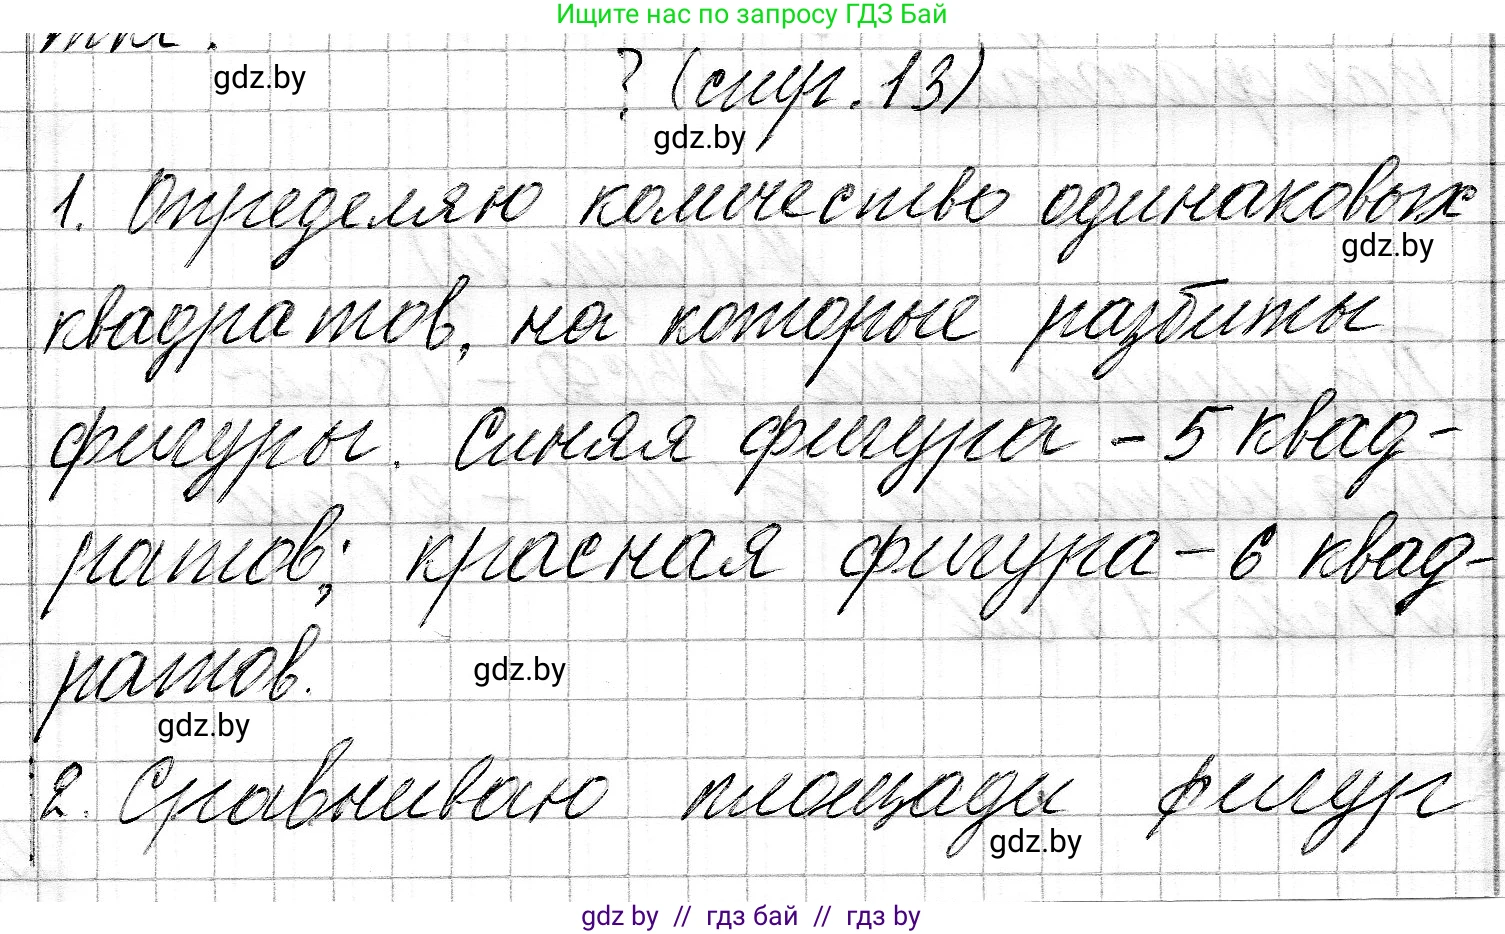 Ищите нас по запросу ГДЗ Бай
gdz.by
? (стр. 13)
gdz.by
1. Определяю количество одинаковых
gdz.by
квадратов, на которые разбиты
фигуры. Синяя фигура - 5 квад-
ратов; красная фигура - 6 квад-
ратов.
gdz.by
gdz.by
2. Сравниваю площади фигур
gdz.by
gdz by // гдз бай // гдз by